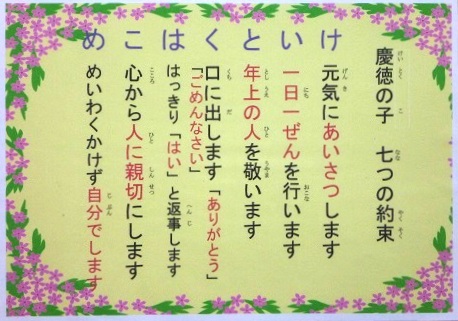 けいとくはこめ
慶徳の子 七つの約束
元気にあいさつします
一日一ぜんを行います
年上の人を敬います
口に出します「ありがとう」
「ごめんなさい」
はっきり「はい」と返事します
心から人に親切にします
めいわくかけず自分でします